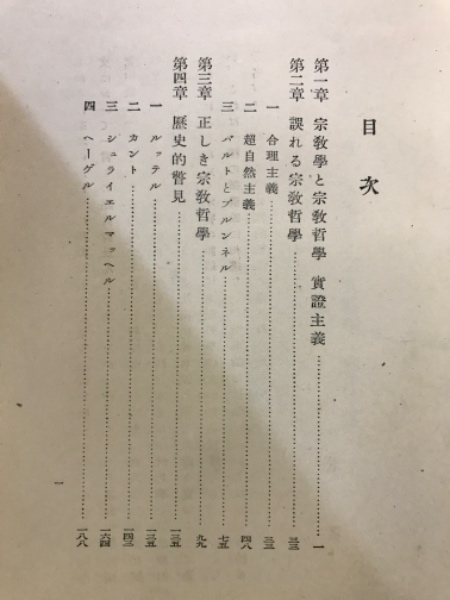 目次
第一章 宗教學と宗教哲學 實證主義 一
第二章 誤れる宗教哲學 三三
一 合理主義 三三
二 超自然主義 四八
三 バルトとブルンネル 七五
第三章 正しき宗教哲學 九九
第四章 歷史的瞥見 一三五
一 ルッテル 一三五
二 カント 一四三
三 シュライエルマッヘル 一六四
四 ヘーゲル 一八八
一